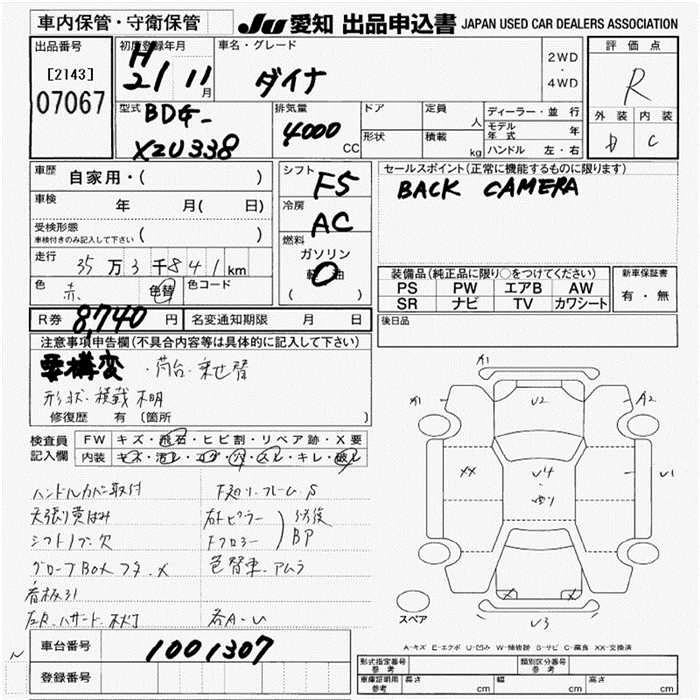 車内保管・守衛保管
JU 愛知 出品申込書 JAPAN USED CAR DEALERS ASSOCIATION
出品番号
[2143]
07067
初度登録年月
H
21 11
月
車名・グレード
ダイナ
2WD
・
4WD
評価点
R
外装 内装
D C
型式
BDG-
XZU338
排気量
4000
CC
ドア
定員
人
形状
積載
kg
ディーラー・並行
モデル年式 年
ハンドル 左・右
車歴
自家用・( )
車検
年 月( 日)
受検形態
車検付きのみ記入して下さい ( )
走行
35万3千841km
色
赤
色替
色コード
シフト
F5
冷房
AC
燃料
ガソリン
軽油
( )
セールスポイント(正常に機能するものに限ります)
BACK CAMERA
装備品(純正品に限り○をつけてください)
PS PW エアB AW
SR ナビ TV カワシート
新車保証書
有・無
後日品
R券 8,740 円
名変通知期限 月 日
注意事項申告欄(不具合内容等は具体的に記入して下さい)
要構変 ・荷台・乗せ替
形状・積載 不明
修復歴 有 (箇所
検査員
記入欄
FW キズ・飛石・ヒビ割・リペア跡・X要
内装 キズ・汚レ・コゲ・穴・スレ・キレ・破レ
ハンドルカバー取付
天張り黄ばみ
シフトノブ欠
グローブBOXフタ・X
看板引
下廻り・フレーム・S
右トピラー
修後
BP
色替車・アムラ
各A・U
A1
A1
A2
U2
XX
U4
U1
X X
U3
スペア
A-キズ E-エクボ U-凹み W-補修跡 S-サビ C-腐食 XX-交換済
車台番号
1001307
登録番号
型式指定番号
参考
類別区分番号
参考
車庫証明用
参考
長さ cm
幅 cm
高さ cm